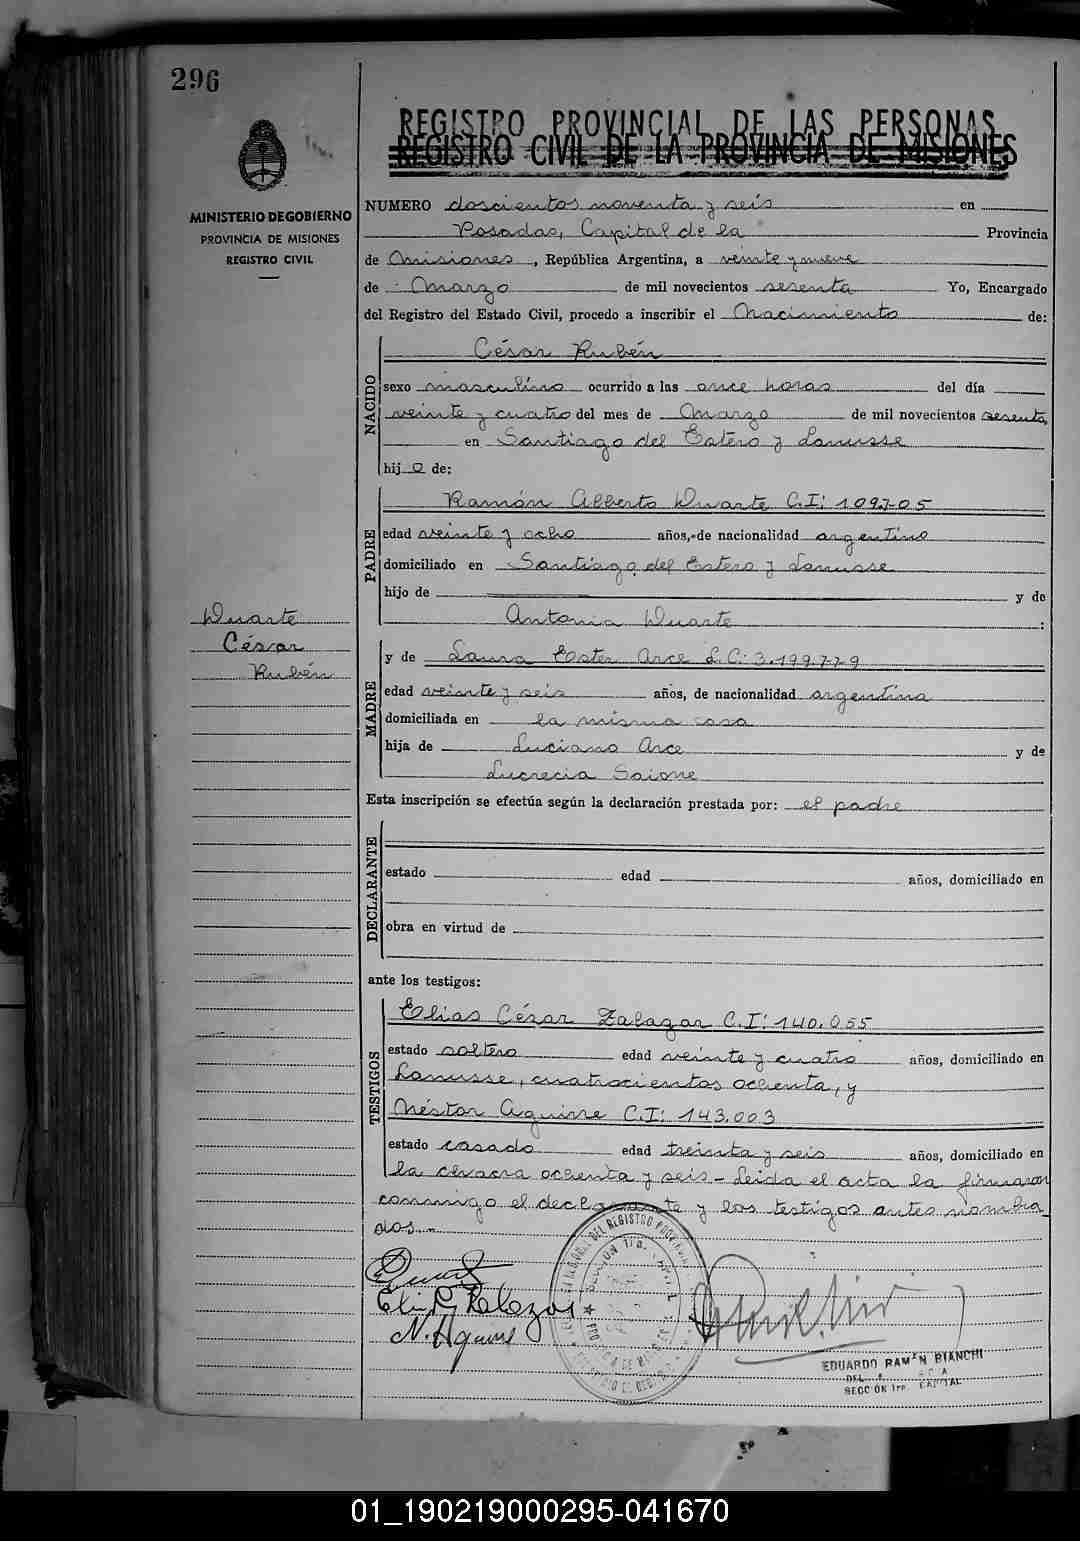 296
REGISTRO PROVINCIAL DE LAS PERSONAS
REGISTRO CIVIL DE LA PROVINCIA DE MISIONES
MINISTERIO DE GOBIERNO
PROVINCIA DE MISIONES
REGISTRO CIVIL
NUMERO doscientos noventa y seis en
Posadas, Capital de la Provincia
de Misiones, República Argentina, a veinte y nueve
de Marzo de mil novecientos sesenta Yo, Encargado
del Registro del Estado Civil, procedo a inscribir el Nacimiento de:
NACIDO
César Rubén
sexo masculino ocurrido a las once horas del día
veinte y cuatro del mes de Marzo de mil novecientos sesenta,
en Santiago del Estero y Lanusse
hijo de:
PADRE
Ramón Alberto Duarte C.I: 109.705
edad veinte y ocho años, de nacionalidad argentino
domiciliado en Santiago del Estero y Lanusse
hijo de y de
Antonia Duarte :
Duarte
César
Rubén
MADRE
y de Laura Ester Arce L.C: 3.199.779
edad veinte y seis años, de nacionalidad argentina
domiciliada en la misma casa
hija de Luciano Arce y de
Lucrecia Saione
Esta inscripción se efectúa según la declaración prestada por: el padre
DECLARANTE
estado edad años, domiciliado en
obra en virtud de
ante los testigos:
TESTIGOS
Elias César Zalazar C.I: 140.055
estado soltero edad veinte y cuatro años, domiciliado en
Lanusse, cuatrocientos ochenta, y
Néstor Aguirre C.I: 143.003
estado casado edad treinta y seis años, domiciliado en
la chacra ochenta y seis - Leida el acta la firmaron
conmigo el declarante y los testigos antes nombra
dos.-
N. Aguirre
EDUARDO RAMÓN BIANCHI
SECCIÓN 1ra. CAPITAL
01_190219000295-041670